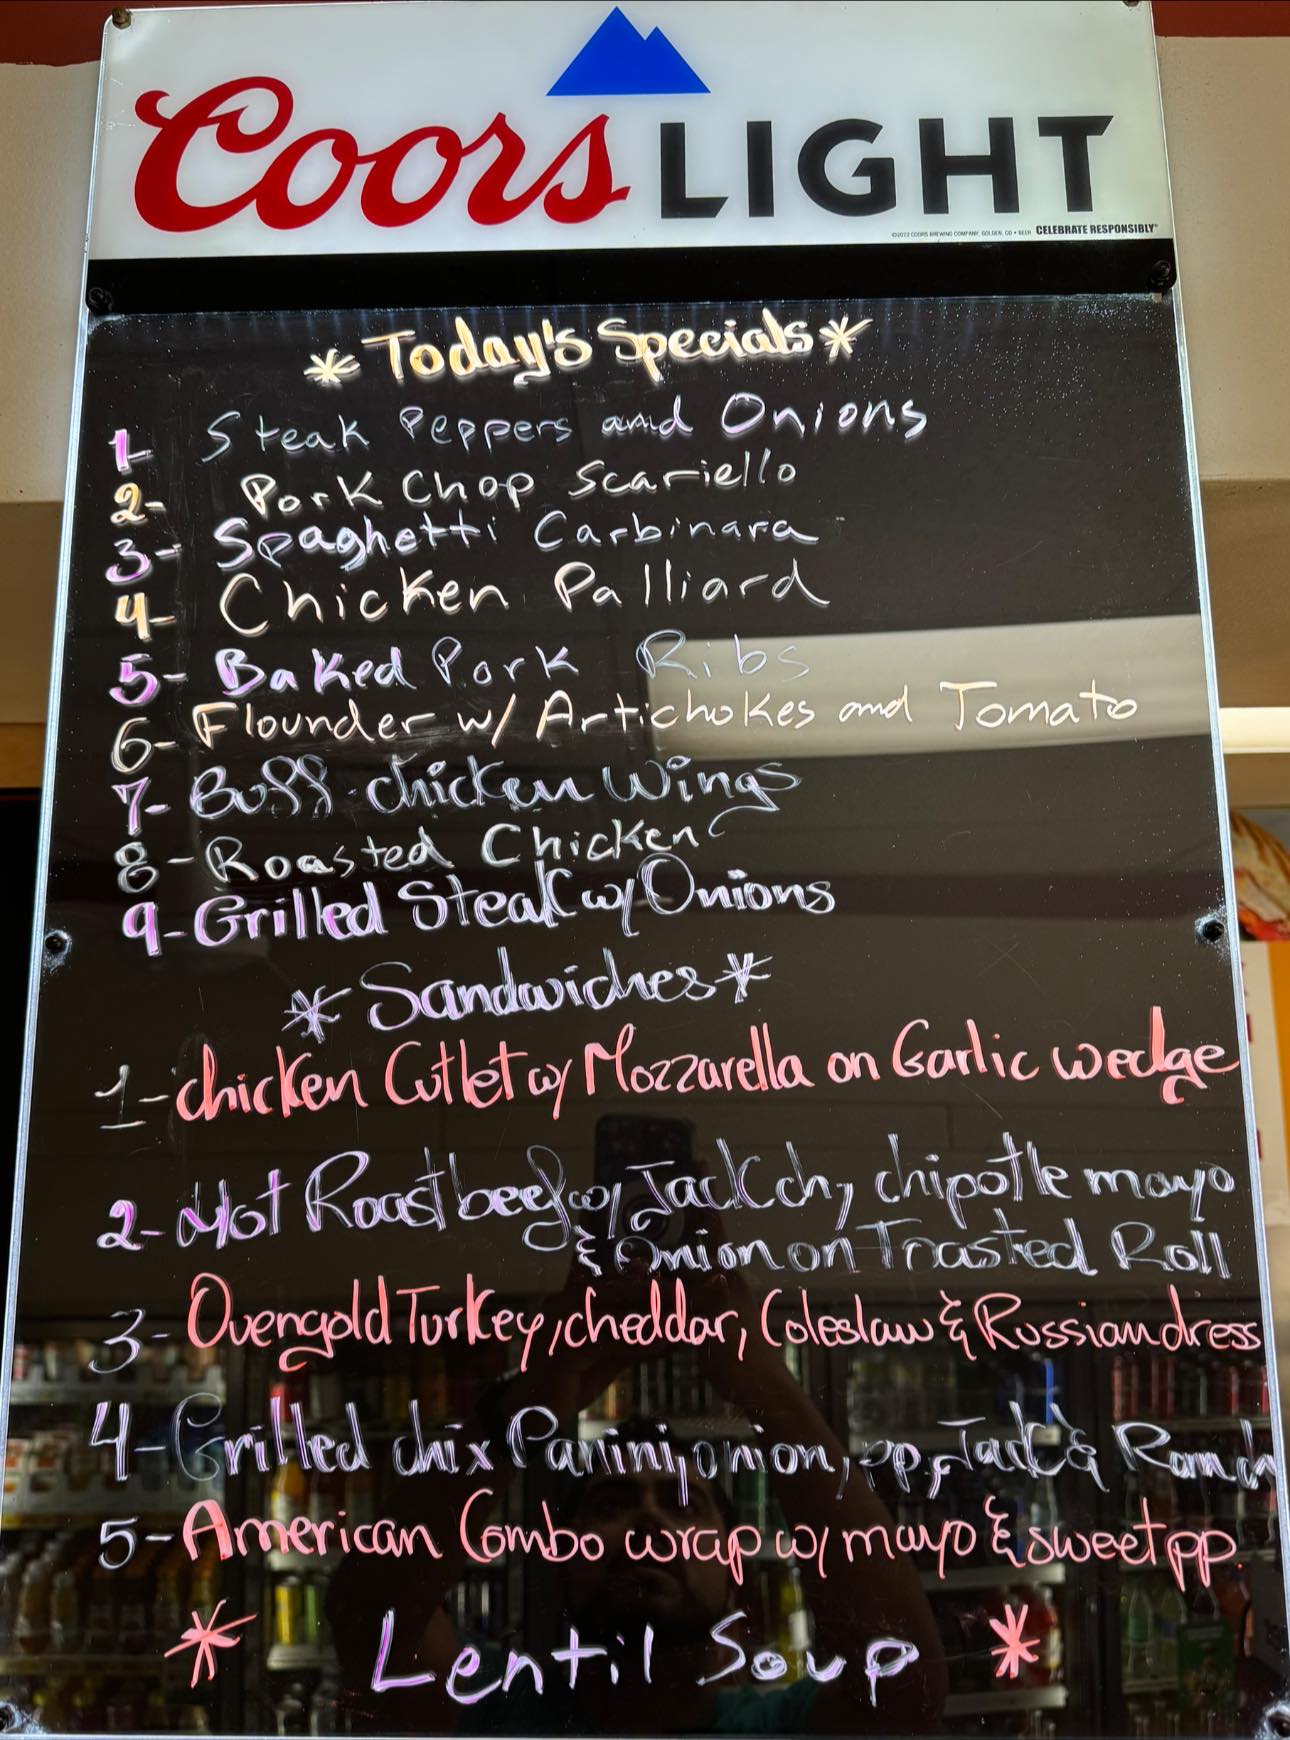 Coors LIGHT
©2022 COORS BREWING COMPANY, GOLDEN, CO • BEER CELEBRATE RESPONSIBLY®
* Today's Specials *
1- Steak Peppers and Onions
2- Pork Chop Scariello
3- Spaghetti Carbinara
4- Chicken Palliard
5- Baked Pork Ribs
6- Flounder w/ Artichokes and Tomato
7- Buff. chicken Wings
8- Roasted Chicken
9- Grilled Steak w/ Onions
* Sandwiches *
1- chicken Cutlet w/ Mozzarella on Garlic wedge
2- Hot Roast beef w/ Jack ch, chipotle mayo
& Onion on Toasted Roll
3- Ovengold Turkey, cheddar, Coleslaw & Russian dress
4- Grilled chix Panini, onion, pp, Jack & Ranch
5- American Combo wrap w/ mayo & sweet pp
* Lentil Soup *